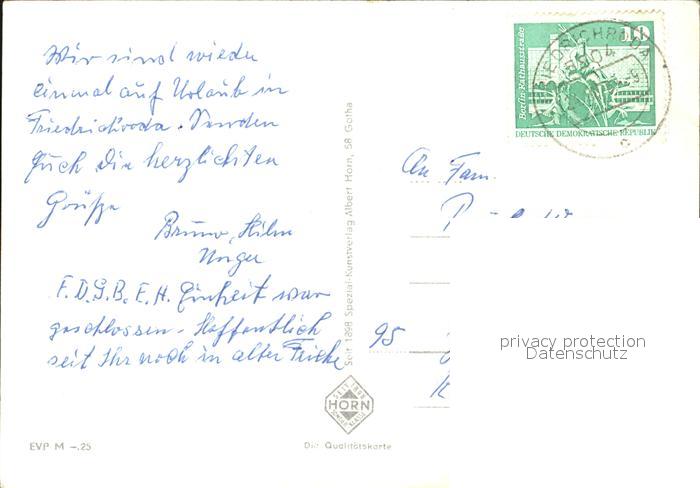 Wir sind wieder
einmal auf Urlaub in
Friedrichroda. Senden
Euch die herzlichsten
Grüße
Bruno, Hilm
Unger
F.D.G.B. E.H. Einheit war
geschlossen - Hoffentlich
seit Ihr noch in alter Frische
EVP M -.25
Seit 1898 Spezial-Kunstverlag Albert Horn, 58 Gotha
SEIT 1898
HORN
Die Qualitätskarte
10
Berlin, Rathausstraße
DEUTSCHE DEMOKRATISCHE REPUBLIK
FRIEDRICHRODA
5804
An Fam.
95
privacy protection
Datenschutz